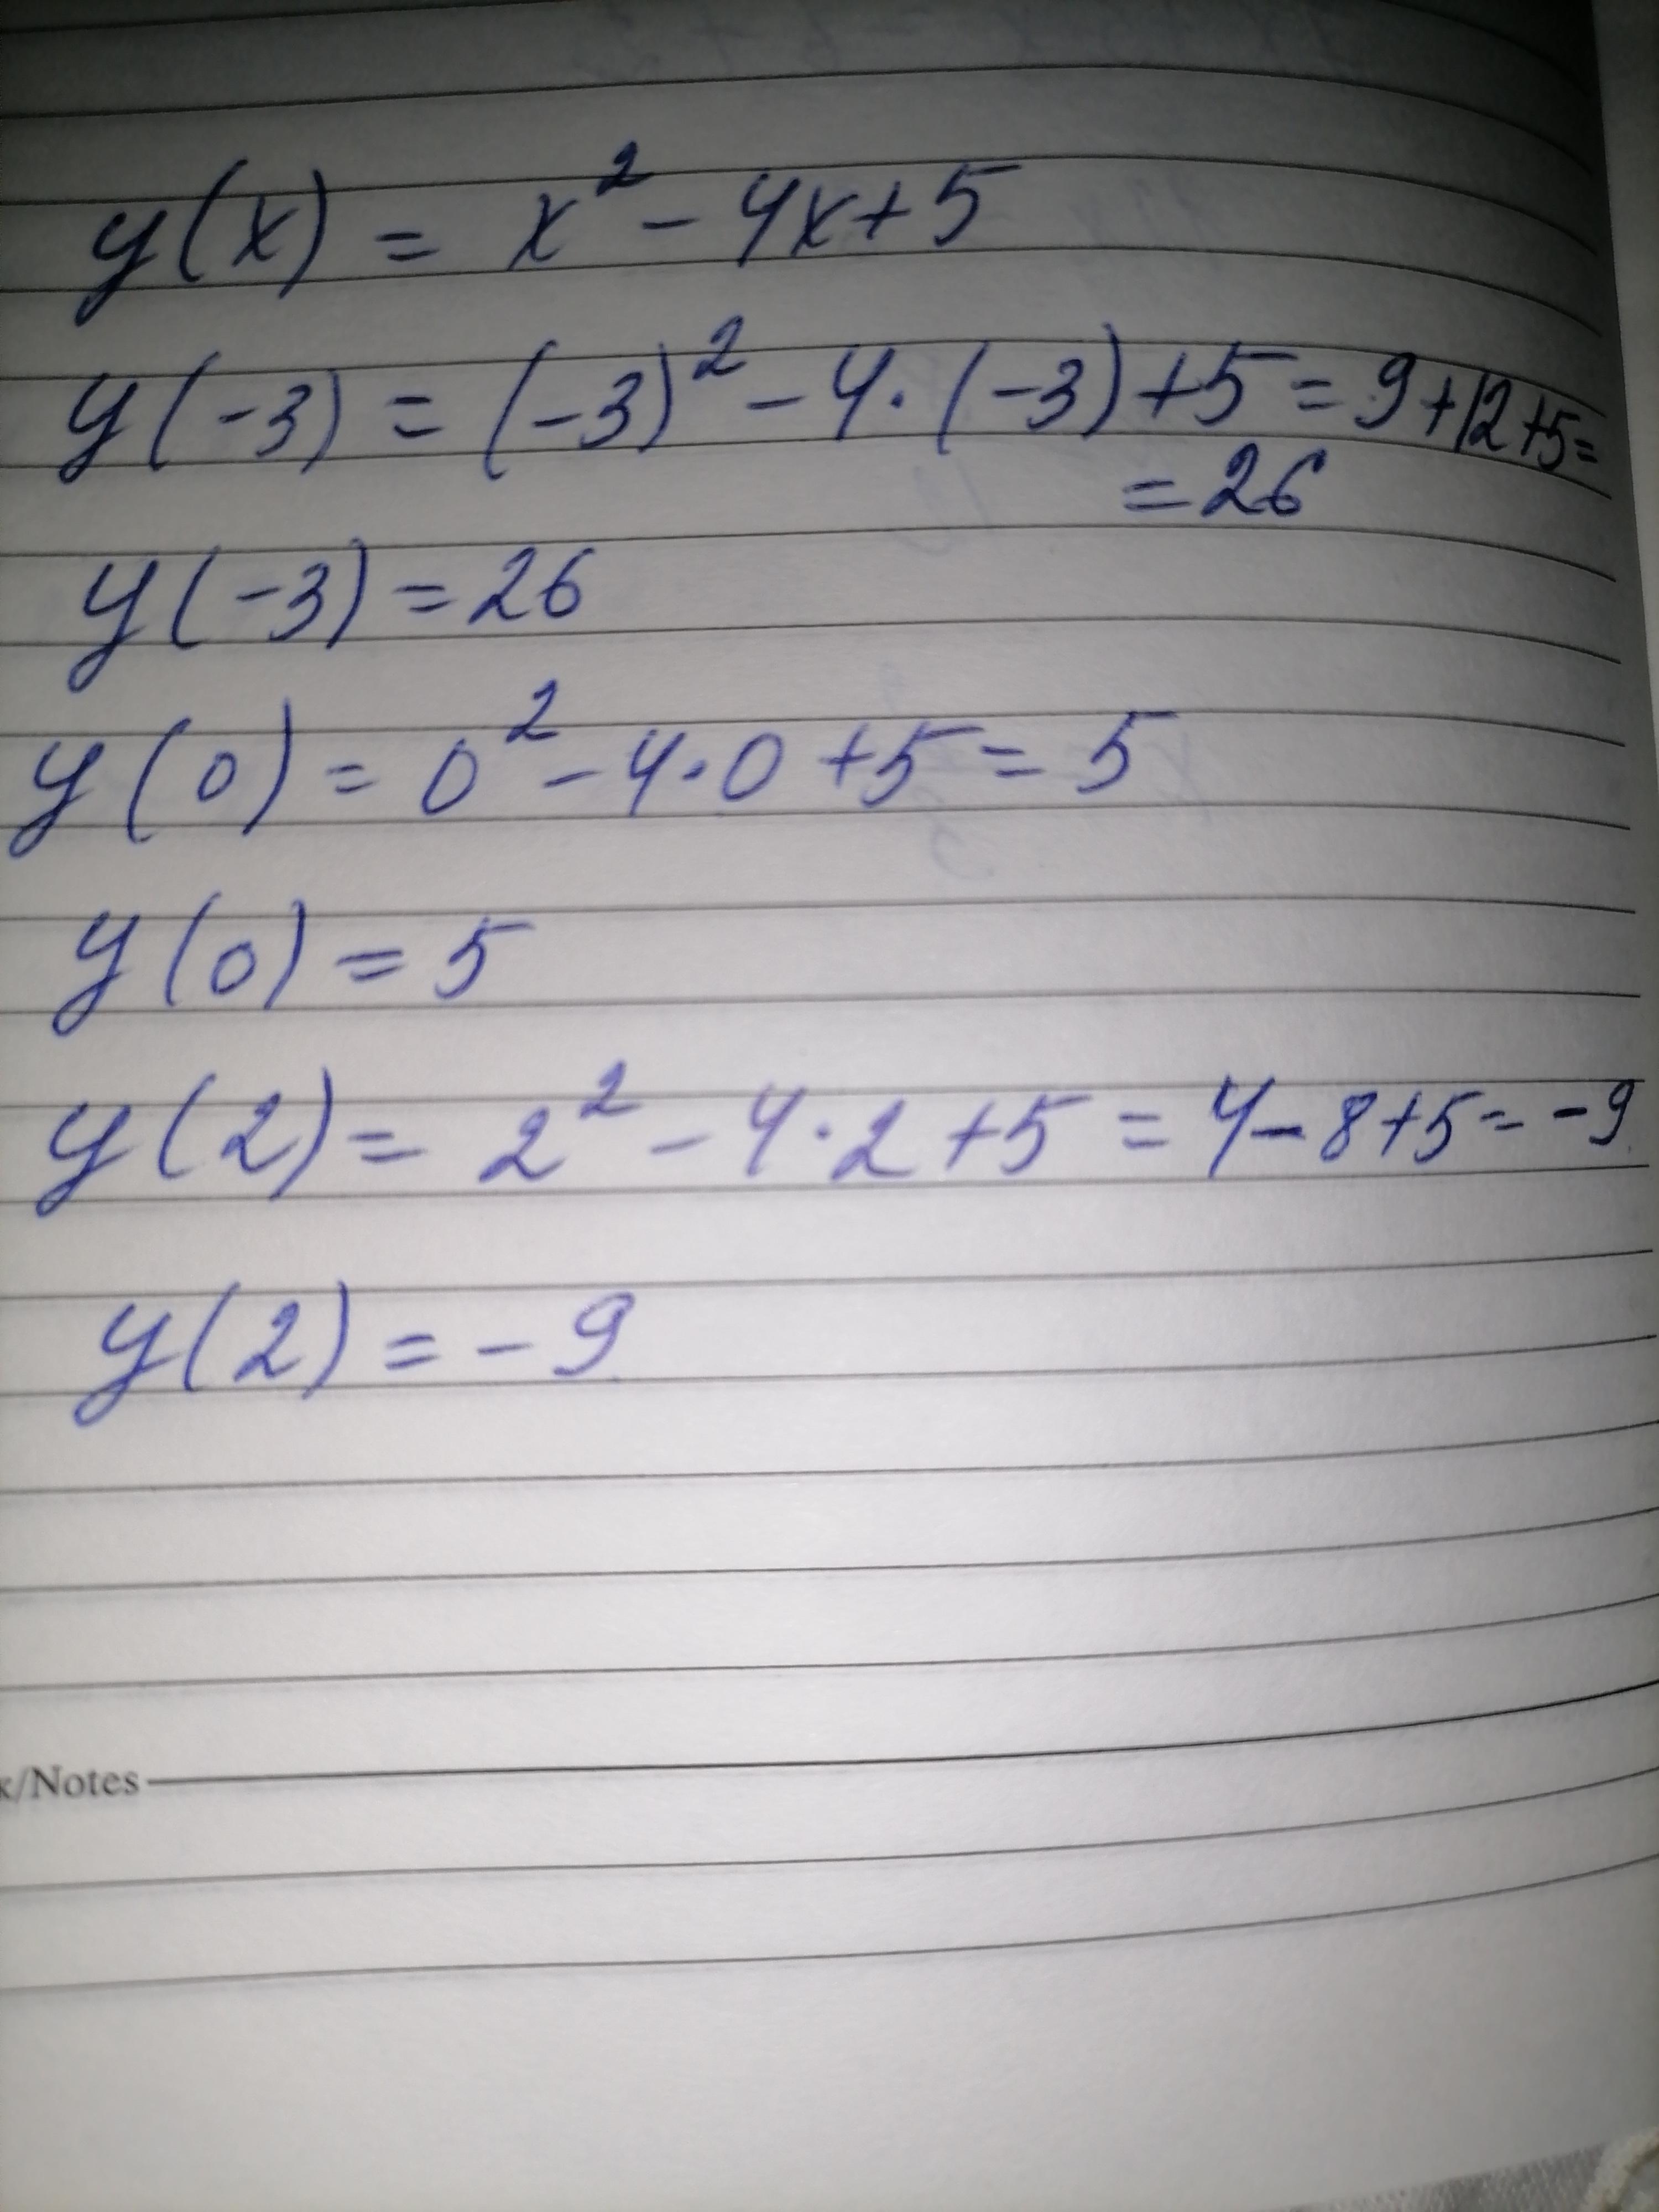 y(x) = x² - 4x+5
y(-3) = (-3)² - 4·(-3)+5=9+12+5=
=26
y(-3)=26
y(0)=0²-4·0+5=5
y(0)=5
y(2)= 2²-4·2+5=4-8+5=-9
y(2)=-9
k/Notes